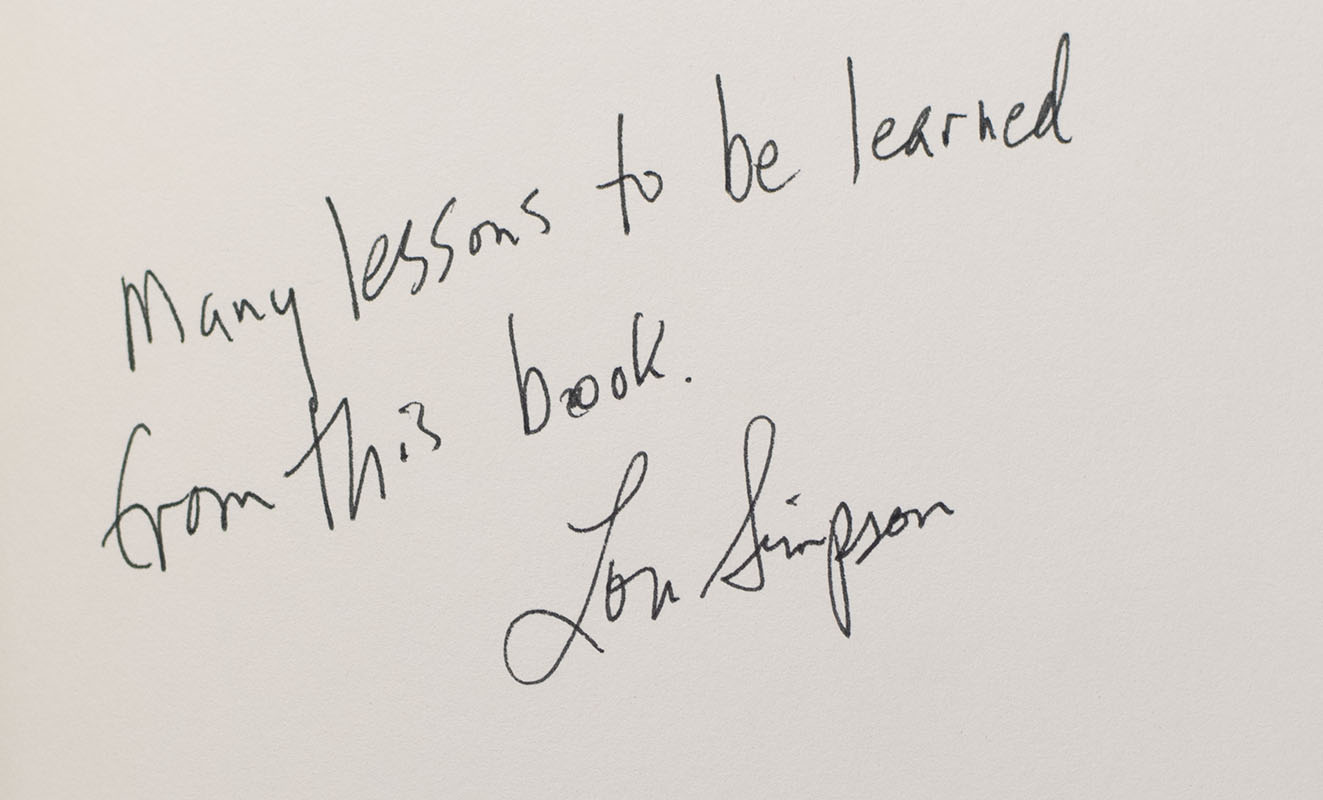 Many lessons to be learned
from this book.
Lou Simpson